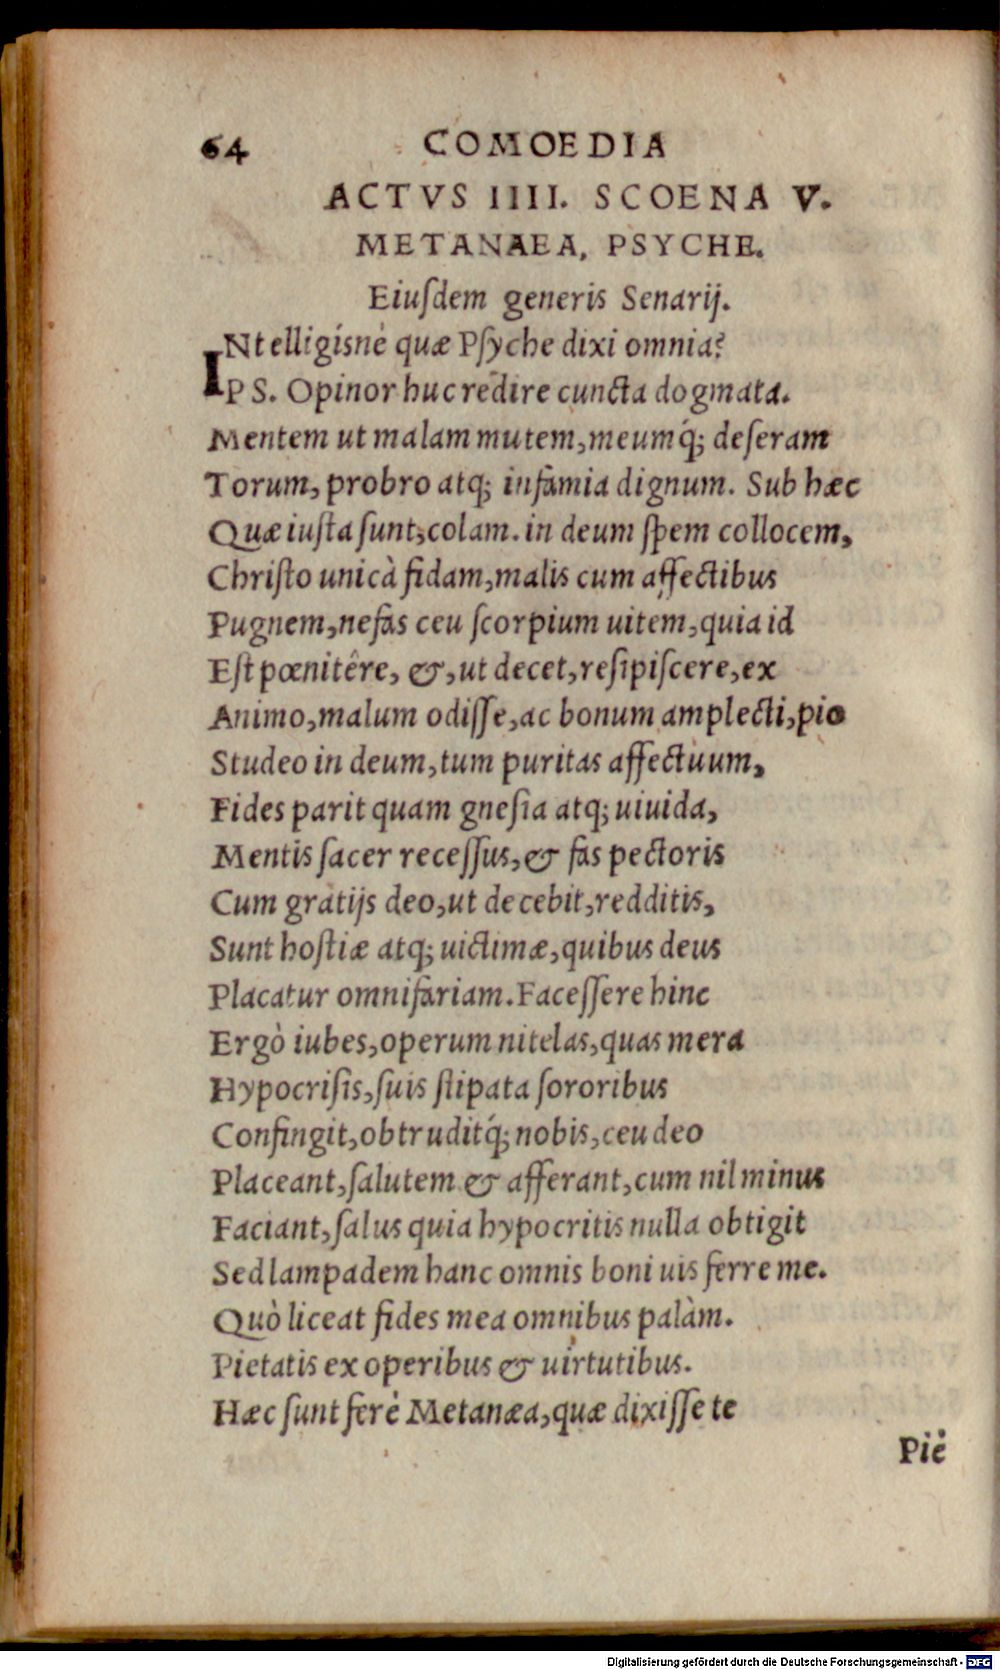 64 COMOEDIA
ACTVS IIII. SCOENA V.
METANAEA, PSYCHE.
Eiuſdem generis Senarij.
INtelligísnè quæ Pſyche dixi omnia?
PS. Opinor huc redire cuncta dogmata.
Mentem ut malam mutem, meumq́; deſeram
Torum, probro atq; infamia dignum. Sub hæc
Quæ iuſta ſunt, colam. in deum ſpem collocem,
Chriſto unicà fidam, malis cum affectibus
Pugnem, nefas ceu ſcorpium uitem, quia id
Eſt pœnitêre, &, ut decet, reſipiſcere, ex
Animo, malum odiſſe, ac bonum amplecti, pio
Studeo in deum, tum puritas affectuum,
Fides parit quam gneſia atq; uiuida,
Mentis ſacer receſſus, & fas pectoris
Cum gratijs deo, ut decebit, redditis,
Sunt hoſtiæ atq; uictimæ, quibus deus
Placatur omnifariam. Faceſſere hinc
Ergò iubes, operum nitelas, quas mera
Hypocriſis, ſuis ſtipata ſororibus
Confingit, obtruditq́; nobis, ceu deo
Placeant, ſalutem & afferant, cum nil minus
Faciant, ſalus quia hypocritis nulla obtigit
Sed lampadem hanc omnis boni uis ferre me.
Quò liceat fides mea omnibus palàm.
Pietatis ex operibus & uirtutibus.
Hæc ſunt ferè Metanæa, quæ dixiſſe te
Piè
Digitalisierung gefördert durch die Deutsche Forschungsgemeinschaft - DFG